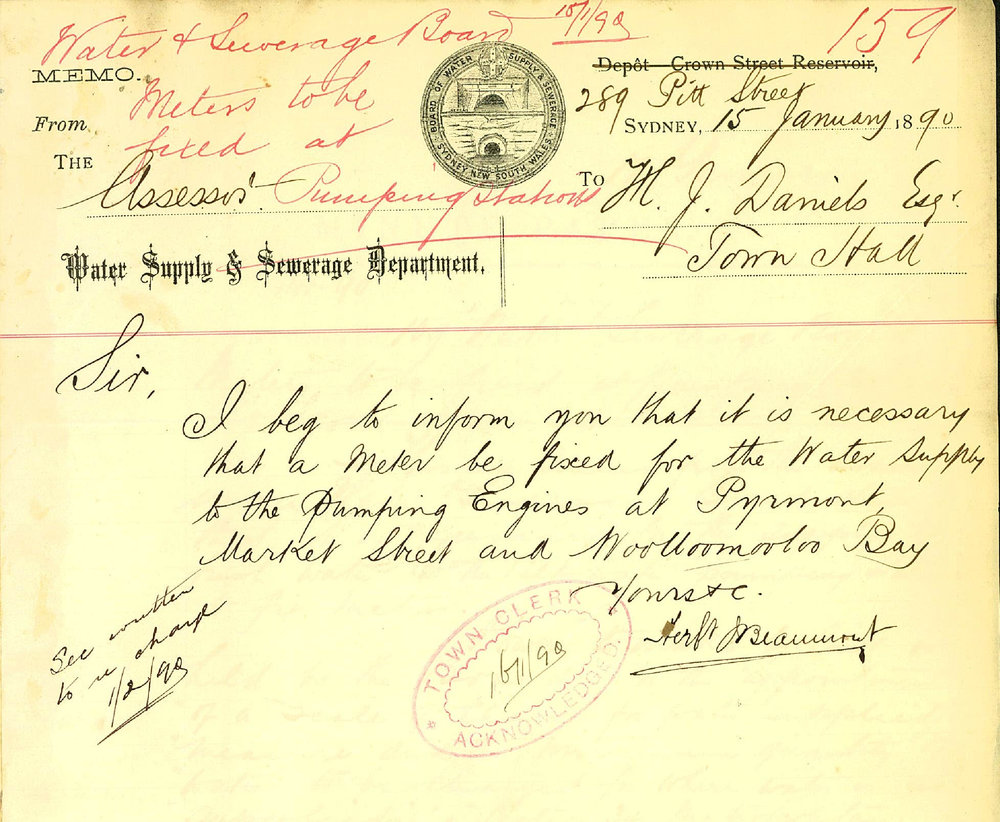 Water & Sewerage Board 15/1/90
159
MEMO.
Meters to be
fixed at
Pumping Stations
BOARD OF WATER SUPPLY & SEWERAGE
SYDNEY, NEW SOUTH WALES
Depôt Crown Street Reservoir,
289 Pitt Street
SYDNEY, 15 January 1890
From
THE
Assessor
Water Supply & Sewerage Department.
To H. J. Daniels Esqr.
Town Hall
Sir,
I beg to inform you that it is necessary
that a Meter be fixed for the Water Supply
to the Pumping Engines at Pyrmont,
Market Street and Woolloomooloo Bay
Yours &c.
Beaumont
See written
to re charge
1/2/90
TOWN CLERK
16/1/90
ACKNOWLEDGED